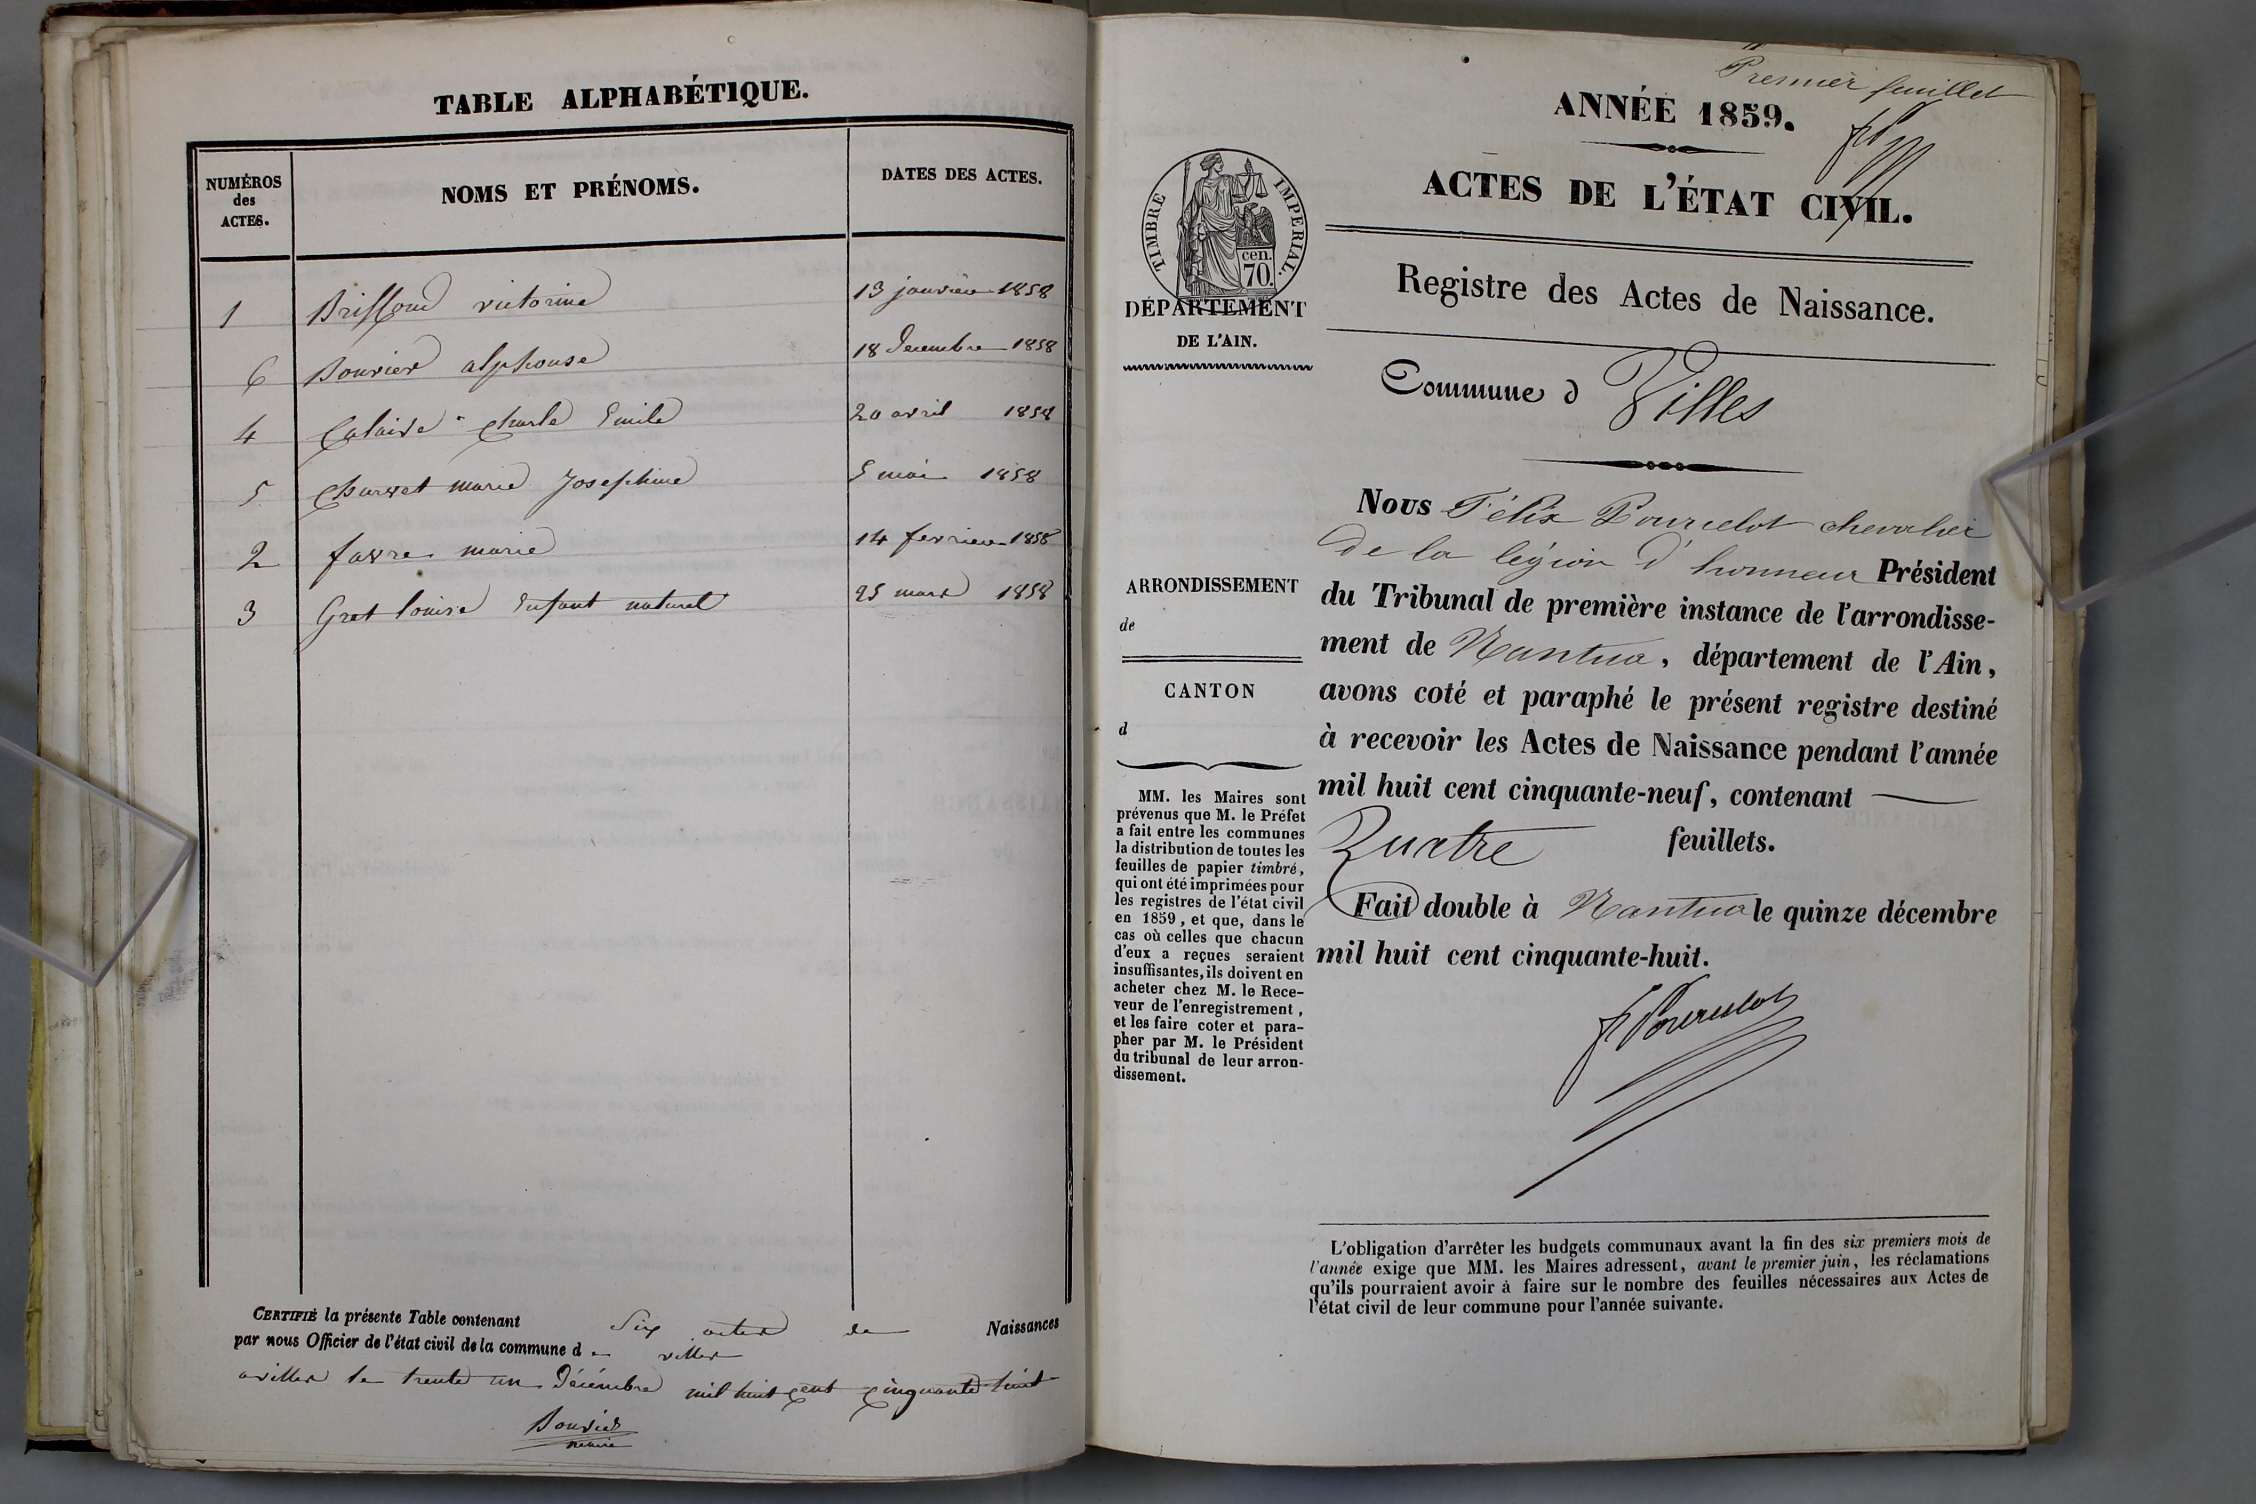 TABLE ALPHABÉTIQUE.
NUMÉROS
des
ACTES.
NOMS ET PRÉNOMS.
DATES DES ACTES.
1 Brissoud victorine 13 janvier 1858
6 Bouvier alphonse 18 decembre 1858
4 Calaise charle Emile 20 avril 1858
5 Charvet marie Josephine 5 mai 1858
2 favre marie 14 fevrier 1858
3 Gret louise Enfant naturel 25 mars 1858
CERTIFIÉ la présente Table contenant Six actes de Naissances
par nous Officier de l'état civil de la commune d e villes
a villes le trente un Décémbre mil huit cent cinquante huit
Bouvier
maire
Premier feuillet
ANNÉE 1859.
ACTES DE L'ÉTAT CIVIL.
Registre des Actes de Naissance.
Commune d Villes
TIMBRE IMPERIAL.
cen.
70.
DÉPARTEMENT
DE L'AIN.
ARRONDISSEMENT
de
CANTON
d
MM. les Maires sont
prévenus que M. le Préfet
a fait entre les communes
la distribution de toutes les
feuilles de papier timbré,
qui ont été imprimées pour
les registres de l'état civil
en 1859, et que, dans le
cas où celles que chacun
d'eux a reçues seraient
insuffisantes, ils doivent en
acheter chez M. le Rece-
veur de l'enregistrement,
et les faire coter et para-
pher par M. le Président
du tribunal de leur arron-
dissement.
Nous Félix Pourcelot chevalier
de la légion d'honneur Président
du Tribunal de première instance de l'arrondisse-
ment de Nantua, département de l'Ain,
avons coté et paraphé le présent registre destiné
à recevoir les Actes de Naissance pendant l'année
mil huit cent cinquante-neuf, contenant
Quatre feuillets.
Fait double à Nantua le quinze décembre
mil huit cent cinquante-huit.
F Pourcelot
L'obligation d'arrêter les budgets communaux avant la fin des six premiers mois de
l'année exige que MM. les Maires adressent, avant le premier juin, les réclamations
qu'ils pourraient avoir à faire sur le nombre des feuilles nécessaires aux Actes de
l'état civil de leur commune pour l'année suivante.